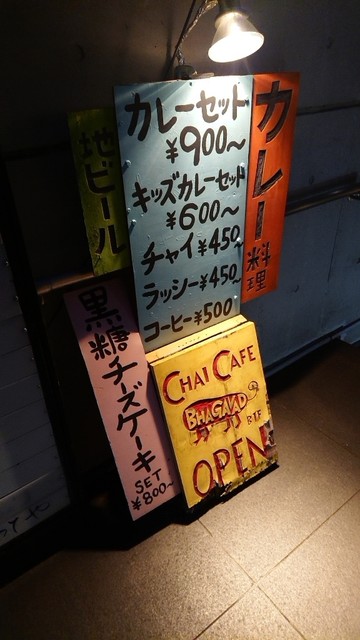 カレーセット
¥900～
キッズカレーセット
¥600～
チャイ¥450～
ラッシー¥450～
コーヒー¥500
カレー料理
地ビール
黒糖チーズケーキ
SET
¥800～
CHAI CAFE
BHAGAVAD
B1F
OPEN